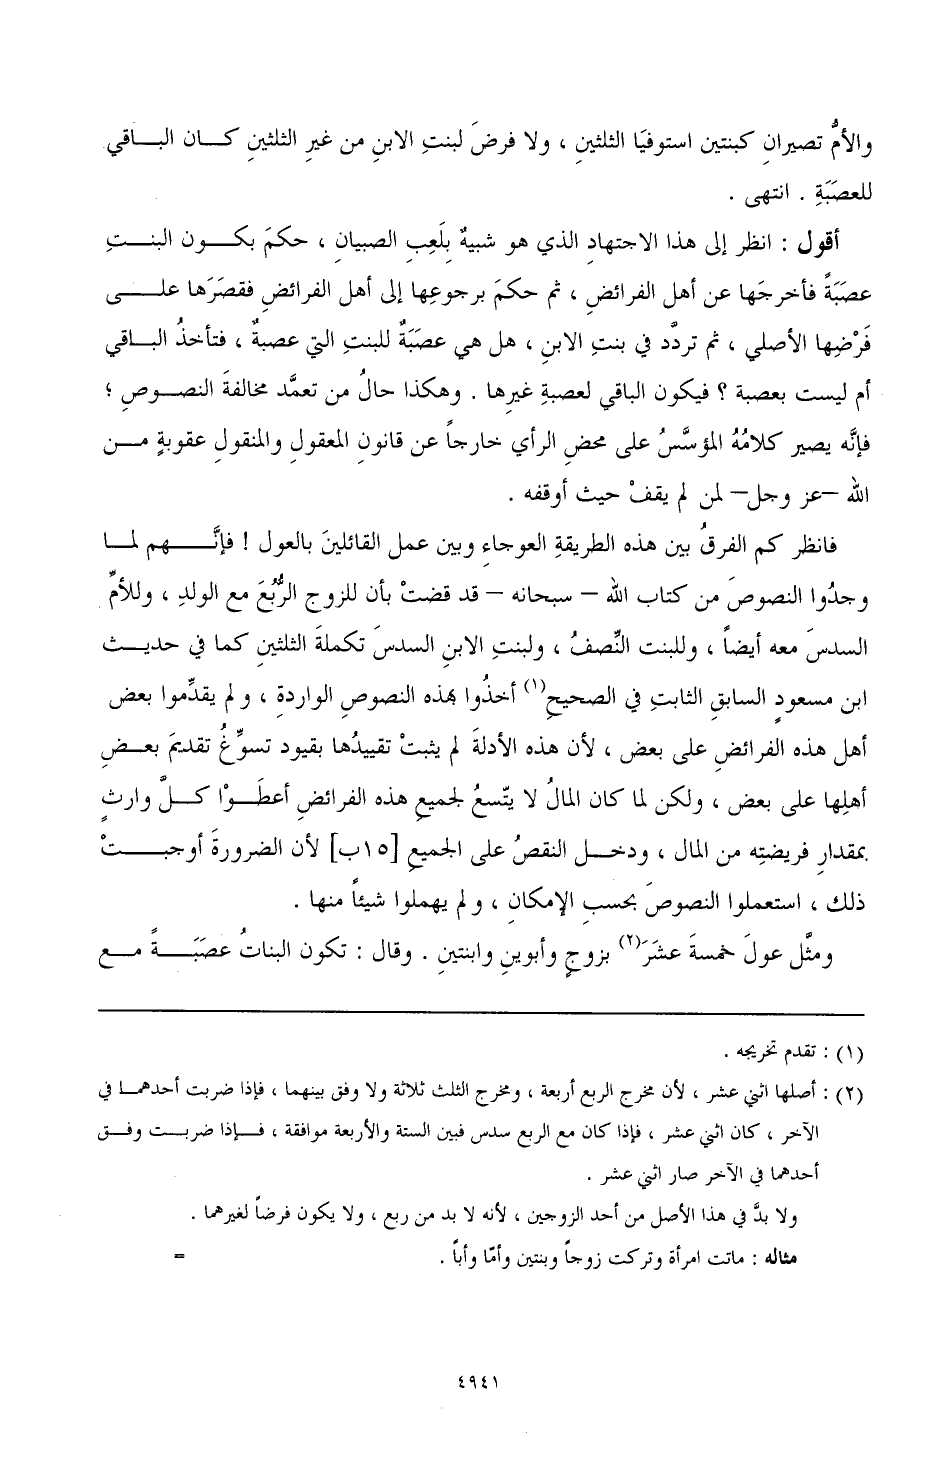 والأمُّ تصيرانِ كبنتين استوفيَا الثلثينِ ، ولا فرضَ لبنتِ الابنِ من غيرِ الثلثينِ كــان البــاقي
للعصَبَةِ . انتهى .
أقول : انظر إلى هذا الاجتهادِ الذي هو شبيهٌ بلَعِبِ الصبيان ، حكمَ بكــون البنــتِ
عصَبَةً فأخرجَها عن أهل الفرائضِ ، ثم حكمَ برجوعِها إلى أهل الفرائضِ فقصَرَها علــى
فَرْضِها الأصلي ، ثم تردَّد في بنتِ الابنِ ، هل هي عصَبَةٌ للبنتِ التي عصبةٌ ، فتأخذُ البــاقي
أم ليست بعصبة ؟ فيكون الباقي لعصبةِ غيرها . وهكذا حالُ من تعمَّد مخالفةَ النصــوصِ ؛
فإنَّه يصير كلامُهُ المؤسَّسُ على محضِ الرأي خارجاً عن قانون المعقولِ والمنقولِ عقوبةٍ مــن
الله –عز وجل– لمن لم يقفْ حيث أوقفه .
فانظر كم الفرقُ بين هذه الطريقةِ العوجاءِ وبين عمل القائلينَ بالعول ! فإنَّــهم لمــا
وجدُوا النصوصَ من كتاب الله – سبحانه – قد قضتْ بأن للزوج الرُّبُعَ مع الولدِ ، وللأمِّ
السدسَ معه أيضاً ، وللبنت النِّصفُ ، ولبنتِ الابنِ السدسَ تكملةَ الثلثينِ كما في حديــث
ابن مسعودٍ السابقِ الثابتِ في الصحيحِ(١) أخذُوا بهذه النصوصِ الواردةِ ، ولم يقدِّموا بعض
أهل هذه الفرائضِ على بعض ، لأن هذه الأدلةَ لم يثبتْ تقييدُها بقيود تسوِّغُ تقديمَ بعــضِ
أهلِها على بعض ، ولكن لما كان المالُ لا يتّسعُ لجميعِ هذه الفرائضِ أعطَــوْا كــلَّ وارثٍ
بمقدارِ فريضتِه من المال ، ودخــل النقصُ على الجميعِ [١٥ب] لأن الضرورةَ أوجبــتْ
ذلك ، استعملوا النصوصَ بحسبِ الإمكانِ ، ولم يهملوا شيئاً منها .
ومثَّل عولَ خمسةَ عشَرَ(٢) بزوجٍ وأبوينِ وابنتينِ . وقال : تكون البناتُ عصَبَــةً مــع
(١) : تقدم تخريجه .
(٢) : أصلها اثني عشر ، لأن مخرج الربع أربعة ، ومخرج الثلث ثلاثة ولا وفق بينهما ، فإذا ضربت أحدهمــا في
الآخر ، كان اثني عشر ، فإذا كان مع الربع سدس فبين الستة والأربعة موافقة ، فــإذا ضربــت وفــق
أحدهما في الآخر صار اثني عشر .
ولا بدَّ في هذا الأصل من أحد الزوجين ، لأنه لا بد من ربع ، ولا يكون فرضاً لغيرهما .
مثاله : ماتت امرأة وتركت زوجاً وبنتين وأمّا وأباً . =
٤٩٤١